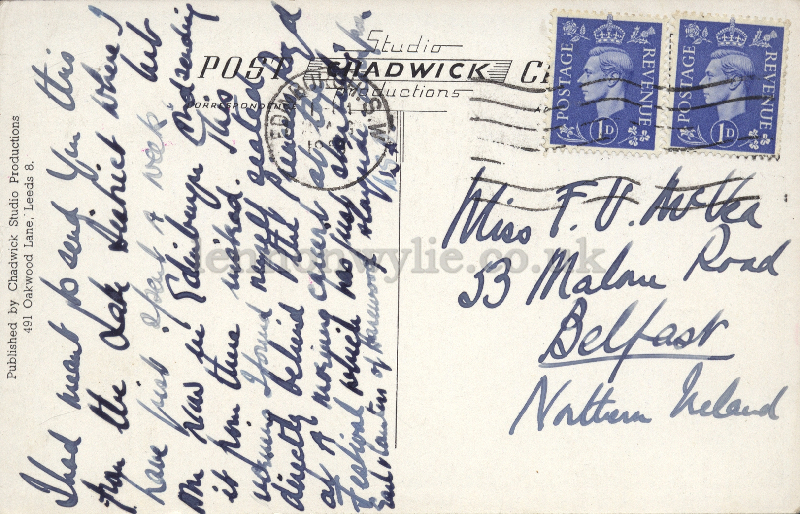 Studio
POST CHADWICK
Productions
CORRESPONDENCE
EDINBURGH
POSTAGE REVENUE
1D
POSTAGE REVENUE
1D
Published by Chadwick Studio Productions
491 Oakwood Lane, Leeds 8.
I had meant to send you this
from the Lake District where I
have just spent a week but
am now in Edinburgh and sending
it from there instead. This
morning I found myself seated
directly behind
at a morning concert at
Festival which has just started
Earl & Countess of Harewood
Miss F. V.
53 Malone Road
Belfast
Northern Ireland
lennonwylie.co.uk